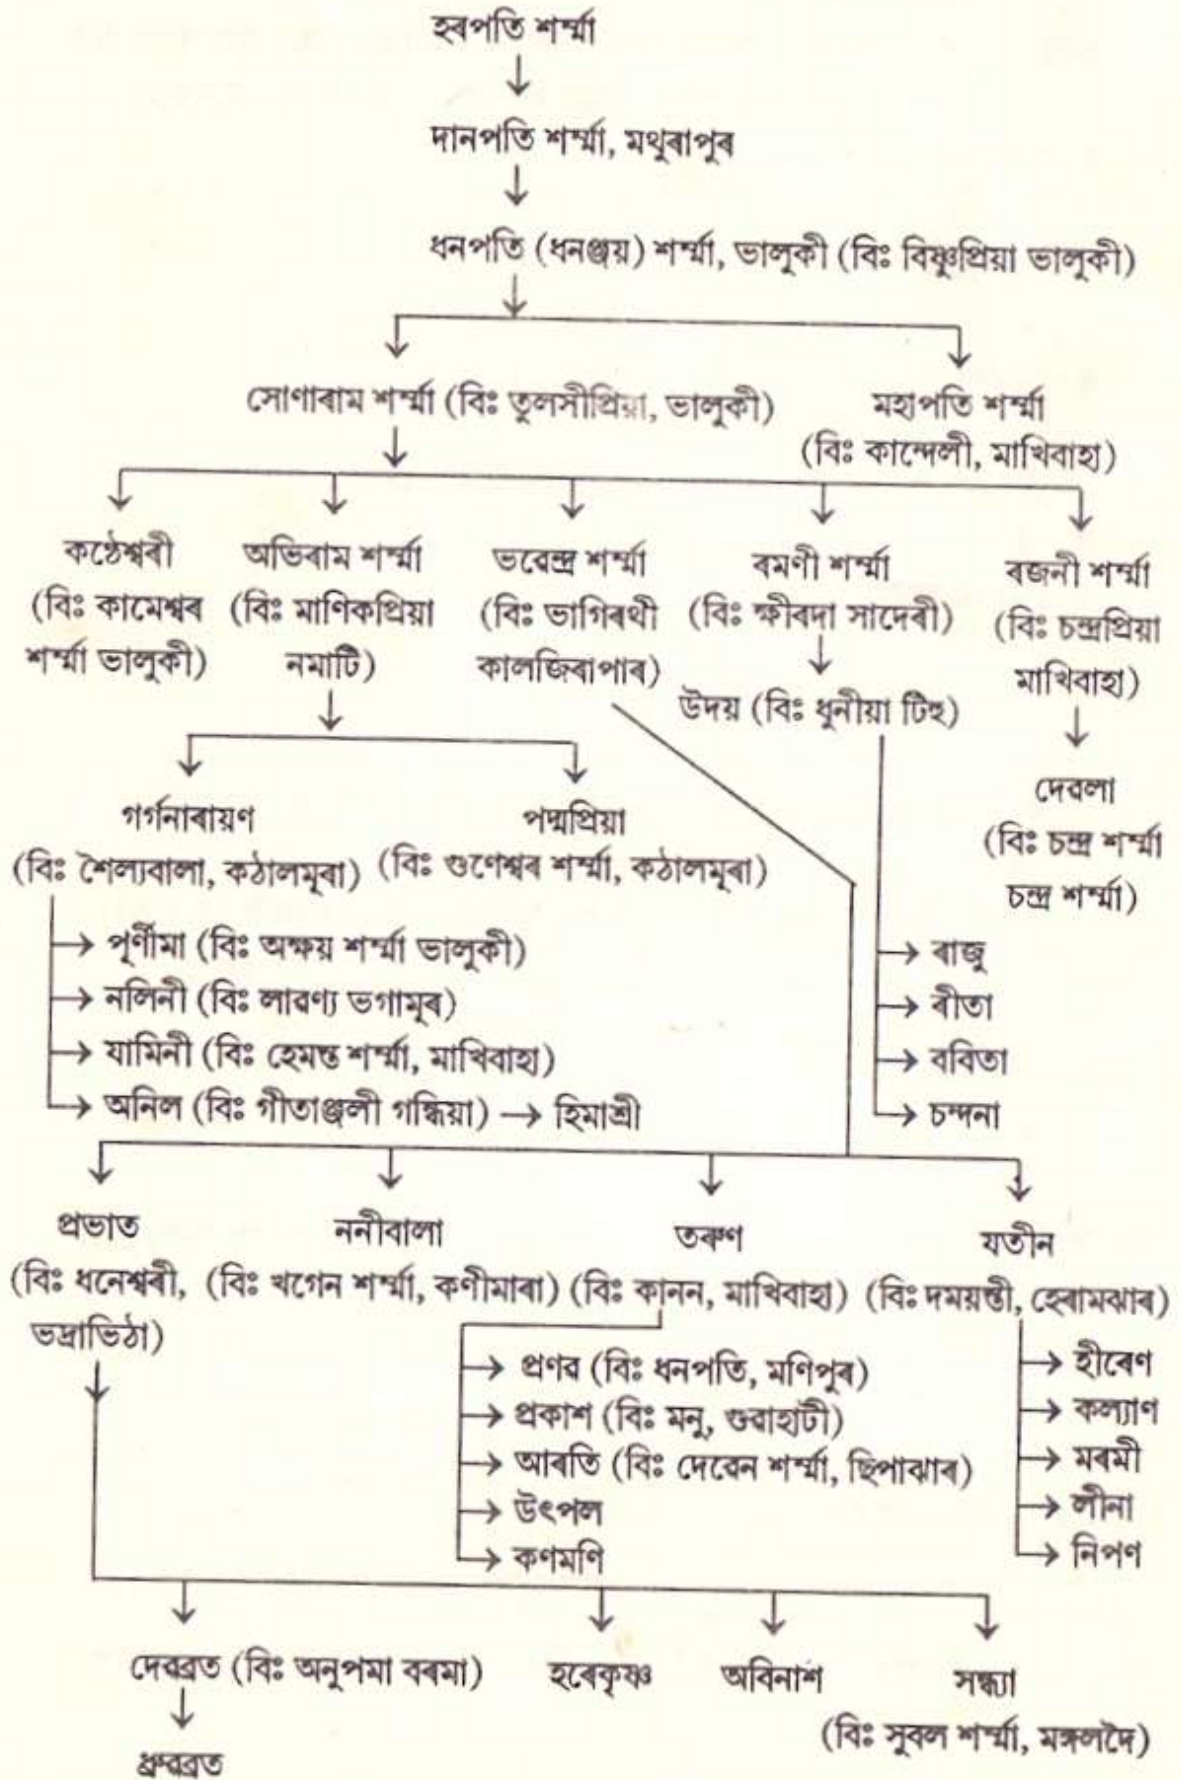 হৰপতি শৰ্ম্মা
দানপতি শৰ্ম্মা, মথুৰাপুৰ
ধনপতি (ধনঞ্জয়) শৰ্ম্মা, ভালুকী (বিঃ বিষ্ণুপ্ৰিয়া ভালুকী)
সোণাৰাম শৰ্ম্মা (বিঃ তুলসীপ্ৰিয়া, ভালুকী)
মহাপতি শৰ্ম্মা
(বিঃ কান্দেলী, মাখিবাহা)
কণ্ঠেশ্বৰী
(বিঃ কামেশ্বৰ
শৰ্ম্মা ভালুকী)
অভিৰাম শৰ্ম্মা
(বিঃ মাণিকপ্ৰিয়া
নমাটি)
ভৱেন্দ্ৰ শৰ্ম্মা
(বিঃ ভাগিৰথী
কালজিৰাপাৰ)
ৰমণী শৰ্ম্মা
(বিঃ ক্ষীৰদা সাদেৰী)
উদয় (বিঃ ধুনীয়া টিহু)
ৰজনী শৰ্ম্মা
(বিঃ চন্দ্ৰপ্ৰিয়া
মাখিবাহা)
দেৱলা
(বিঃ চন্দ্ৰ শৰ্ম্মা
চন্দ্ৰ শৰ্ম্মা)
গৰ্গনাৰায়ণ
(বিঃ শৈল্যবালা, কঠালমূৰা)
পদ্মপ্ৰিয়া
(বিঃ গুণেশ্বৰ শৰ্ম্মা, কঠালমূৰা)
পূৰ্ণীমা (বিঃ অক্ষয় শৰ্ম্মা ভালুকী)
নলিনী (বিঃ লাৱণ্য ভগামূৰ)
যামিনী (বিঃ হেমন্ত শৰ্ম্মা, মাখিবাহা)
অনিল (বিঃ গীতাঞ্জলী গন্ধিয়া) → হিমাশ্ৰী
ৰাজু
ৰীতা
ববিতা
চন্দনা
প্ৰভাত
(বিঃ ধনেশ্বৰী,
ভদ্ৰাভিঠা)
ননীবালা
(বিঃ খগেন শৰ্ম্মা, কণীমাৰা)
তৰুণ
(বিঃ কানন, মাখিবাহা)
যতীন
(বিঃ দময়ন্তী, হেৰামঝাৰ)
প্ৰণৱ (বিঃ ধনপতি, মণিপুৰ)
প্ৰকাশ (বিঃ মনু, গুৱাহাটী)
আৰতি (বিঃ দেৱেন শৰ্ম্মা, ছিপাঝাৰ)
উৎপল
কণমণি
হীৰেণ
কল্যাণ
মৰমী
লীনা
নিপণ
দেৱব্ৰত (বিঃ অনুপমা বৰমা)
হৰেকৃষ্ণ
অবিনাশ
সন্ধ্যা
(বিঃ সুবল শৰ্ম্মা, মঙ্গলদৈ)
ধ্ৰুৱব্ৰত